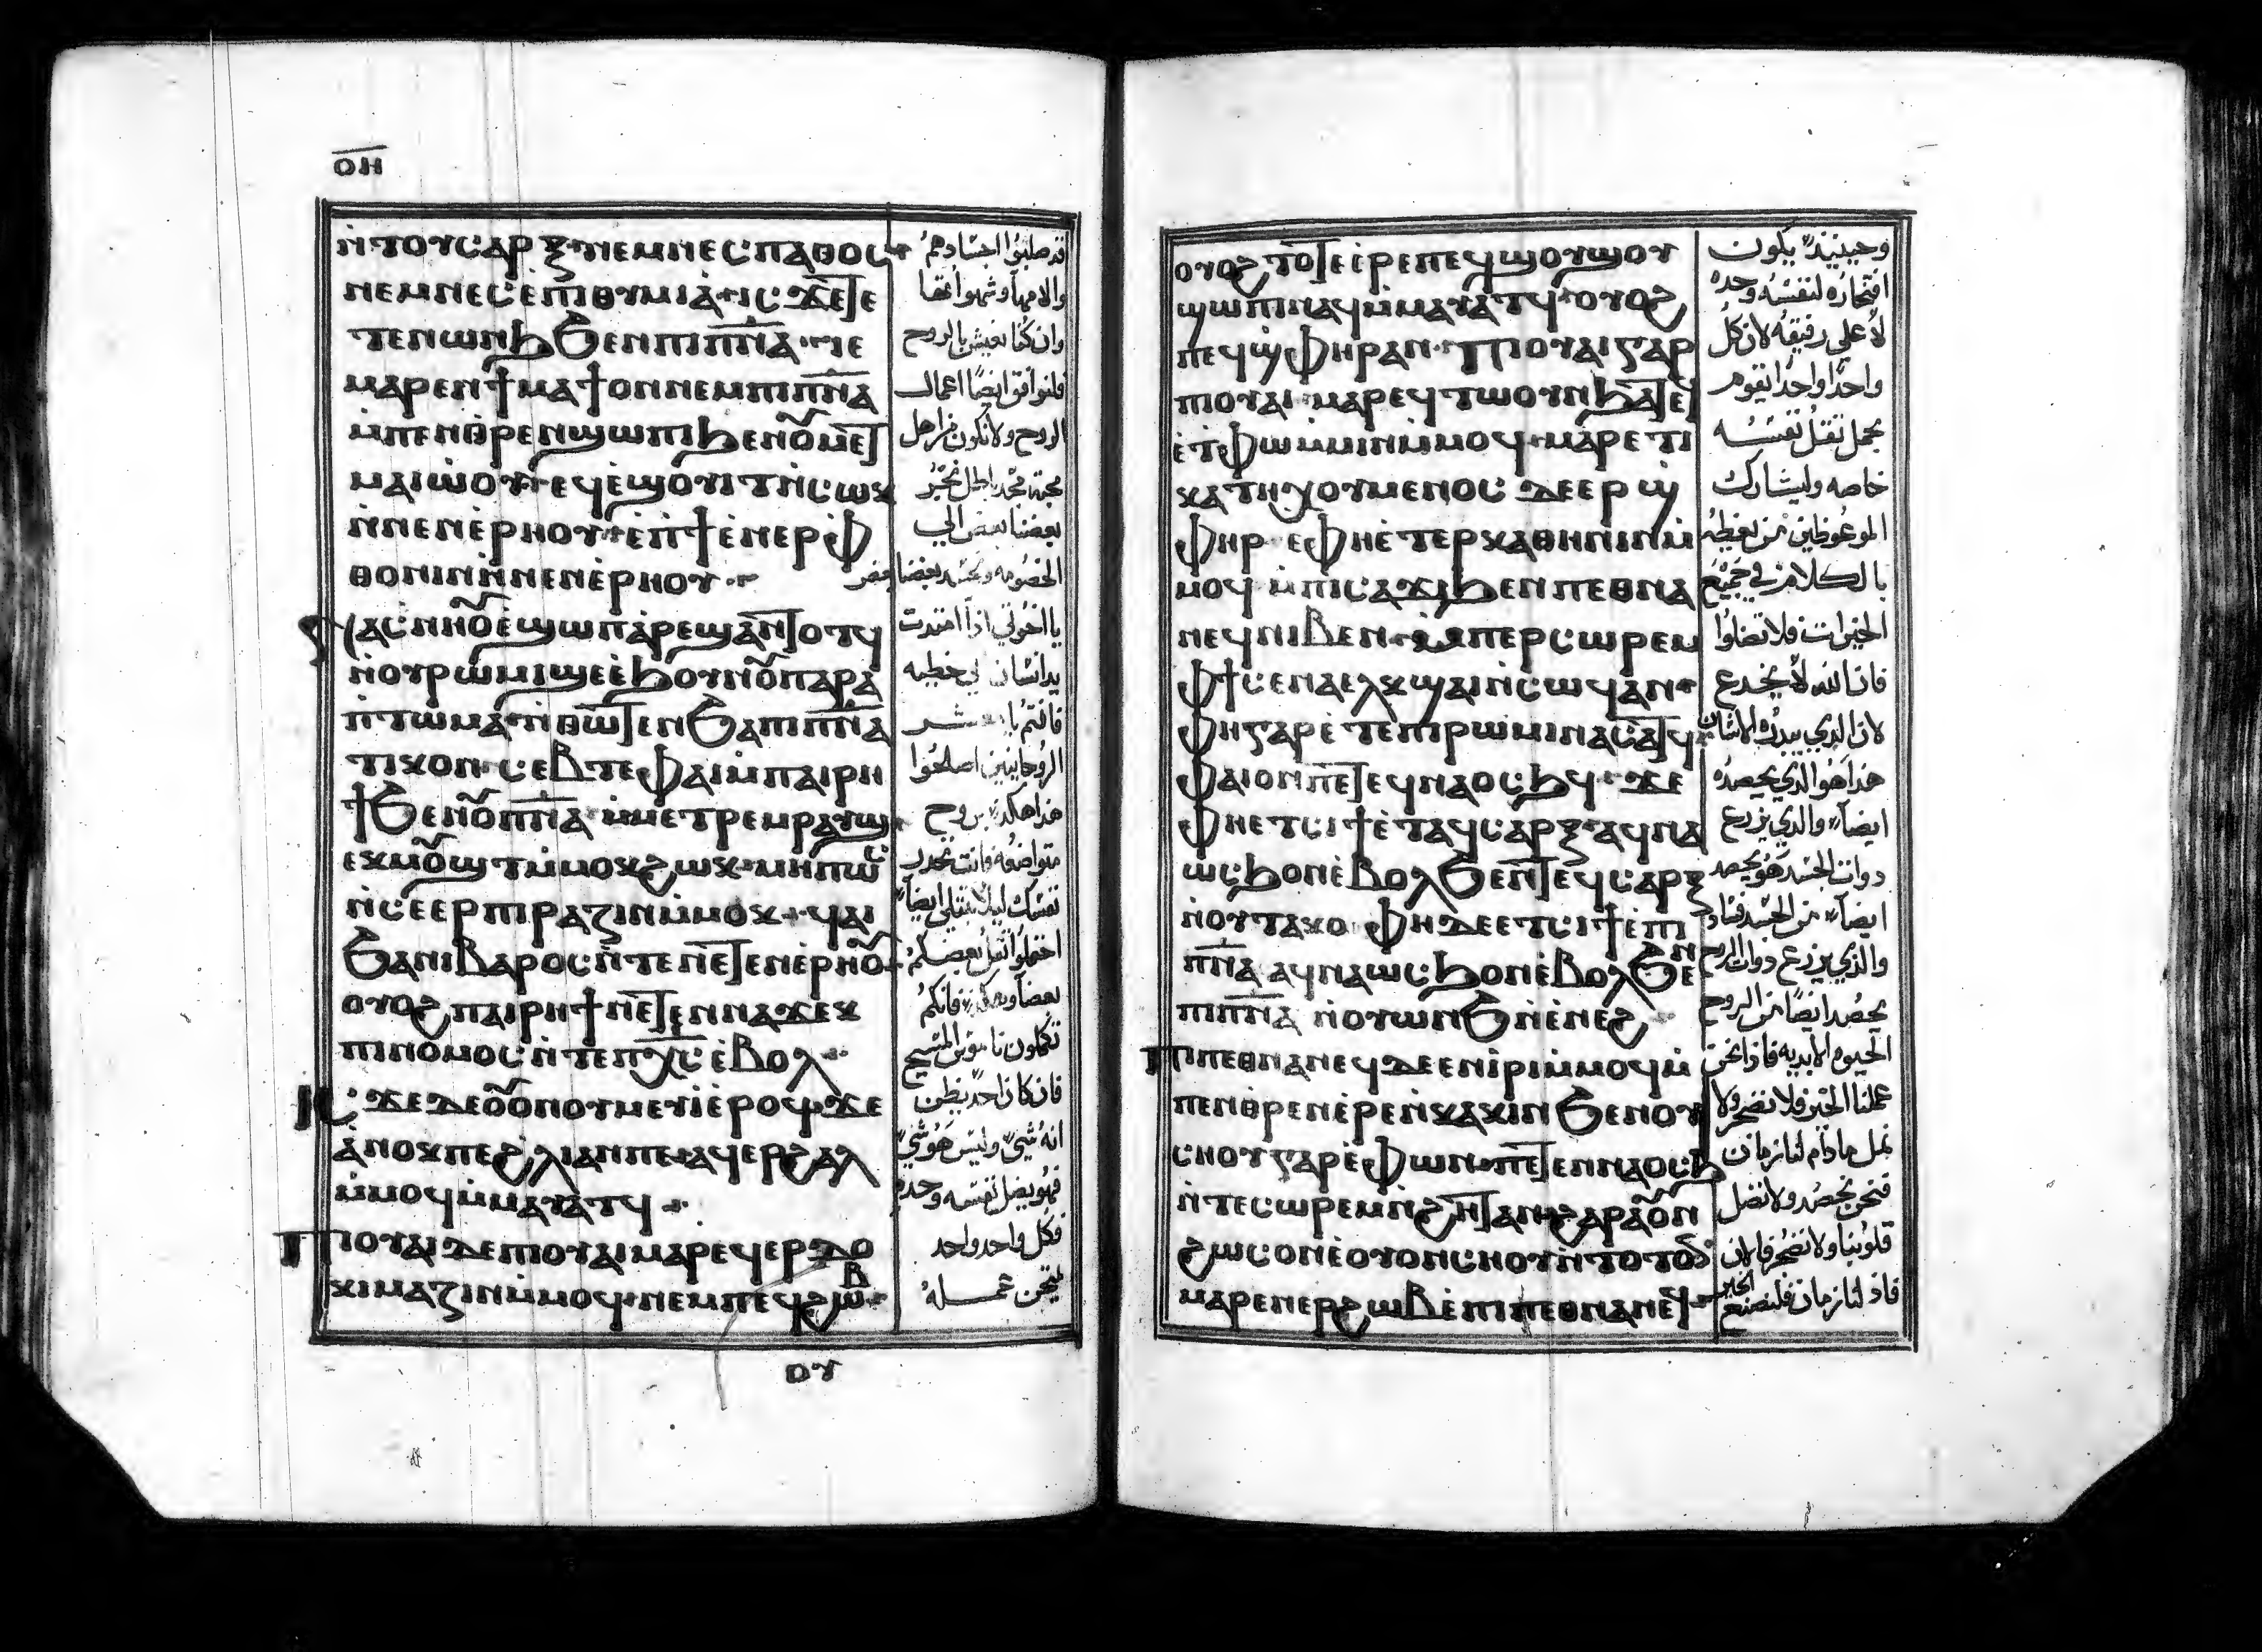 ⲟⲏ
ⲛ̀ⲧⲟⲩⲥⲁⲣⲝ ⲛⲉⲙⲛⲉⲥⲡⲁⲑⲟⲥ
ⲛⲉⲙⲛⲉⲥⲉ̀ⲡⲓⲑⲩⲙⲓⲁ̀ ⲓⲥϫⲉⲧⲉ
ⲧⲉⲛⲱⲛϧϧⲉⲛⲡⲓⲡ̅ⲛ̅ⲁ̅ ⲓⲉ
ⲙⲁⲣⲉⲛϯⲙⲁϯⲟⲛⲛⲉⲙⲡⲓⲡ̅ⲛ̅ⲁ̅
ⲙ̀ⲡⲉⲛⲑⲣⲉⲛϣⲱⲡⲓϧⲉⲛⲟ̃ⲙⲉⲧ
ⲙⲁⲓⲱ̀ⲟⲩ ⲉϥⲉ̀ϣⲟⲩⲓⲧⲛ̀ⲥⲱⲕ
ⲛ̀ⲛⲉⲛⲉ̀ⲣⲏⲟⲩ ⲉ̀ⲡ̀ϯⲉ̀ⲛⲉⲣⲫ̀
ⲑⲟⲛⲓⲛⲛ̀ⲛⲉⲛⲉ̀ⲣⲏⲟⲩ
ⲛⲁⲥⲛⲏⲟ̃ⲉ̀ϣⲱⲡⲁ̀ⲣⲉϣⲁⲛⲧⲟⲧϥ
ⲛ̀ⲟⲩⲣⲱⲙⲓϣⲉⲉ̀ϧⲟⲩⲛⲟ̃ⲡⲁⲣⲁ
ⲛ̀ⲧⲱⲙⲁ ⲛ̀ⲑⲱⲧⲉⲛϧⲁⲡⲓⲡ̅ⲛ̅ⲁ̅
ⲧⲓⲕⲟⲛ ⲥⲉⲃⲧⲉⲫⲁⲓⲙ̀ⲡⲁⲓⲣⲏ
ϯϧⲉⲛⲟ̃ⲡ̅ⲛ̅ⲁ̅ ⲙ̀ⲙⲉⲧⲣⲉⲙⲣⲁⲩϣ
ⲉⲕⲙⲟ̃ϣⲧⲙ̀ⲙⲟⲕϩⲱⲕ ⲙⲏⲡⲱⲥ
ⲛ̀ⲥⲉⲉⲣⲡⲓⲣⲁⲍⲓⲛⲙ̀ⲙⲟⲕ ϥⲁⲓ
ϧⲁⲛⲓⲃⲁⲣⲟⲥⲛ̀ⲧⲉⲛⲉⲧⲉⲛⲉ̀ⲣⲏⲟ̃
ⲟⲩⲟϩⲡⲁⲓⲣⲏϯⲛⲉⲧⲉⲛⲛⲁϫⲉⲕ
ⲡⲓⲛⲟⲙⲟⲥⲛ̀ⲧⲉⲡⲭ̅ⲥ̅ⲉ̀ⲃⲟⲗ
ⲓⲥϫⲉⲇⲉⲟ̃ⲟⲛⲟⲩⲙⲉⲩⲓⲉ̀ⲣⲟϥϫⲉ
ⲁ̀ⲛⲟⲕⲡⲉϩⲗⲓⲁⲛⲡⲉ ⲁϥⲉⲣϩⲁⲗ
ⲙ̀ⲙⲟϥⲙ̀ⲙⲁⲩⲁⲧϥ
ⲡⲓⲟⲩⲁⲓⲇⲉⲡⲓⲟⲩⲁⲓⲙⲁⲣⲉϥⲉⲣⲇⲟ
ⲕⲓⲙⲁⲍⲓⲛⲙ̀ⲙⲟϥ ⲛⲉⲙⲡⲉϥϩⲱⲃ
ⲟⲩ
قد صلبوا اجسادهم
والامها وشهواتها
وان كنا نعيش بالروح
فلنوافق ايضا اعمال
الروح ولانكون من اهل
يا اخوتي اذا امتدت
يد انسان الي خطيه
الروحانيين اصلحوا
هذا هكذا بروح
متواضعه وانت تحذر
نفسك ليلا تبتلي ايضا
احتملوا ثقل بعضكم
تكملون ناموس المسيح
فان كان احد يظن
انه شي وليس هو شي
فهو يضل نفسه وحده
فكل واحد واحد
ⲟⲩⲟϩⲧⲟⲧⲉⲉⲣⲉⲡⲉϥϣⲟⲩϣⲟⲩ
ϣⲱⲡⲓⲛⲁϥⲙ̀ⲙⲁⲩⲁⲧϥ ⲟⲩⲟϩ
ⲡⲉϥϣ̀ⲫⲏⲣⲁⲛ ⲡⲓⲟⲩⲁⲓⲅⲁⲣ
ⲡⲓⲟⲩⲁⲓ ⲙⲁⲣⲉϥⲧⲱⲟⲩⲛϧⲁⲧⲉϥ
ⲉ̀ⲧⲫⲱⲙ̀ⲙⲓⲛⲙ̀ⲙⲟϥ ⲙⲁⲣⲉ ⲡⲓ
ⲕⲁⲧⲏⲭⲟⲩⲙⲉⲛⲟⲥ ⲇⲉⲉⲣ ϣ̀
ⲫⲏⲣ ⲉⲫⲏⲉ̀ⲧⲉⲣⲕⲁⲑⲏⲛⲓⲛⲙ̀
ⲙⲟϥ ⲙ̀ⲡⲓⲥⲁϫⲓϧⲉⲛⲡⲉⲑⲛⲁ
ⲛⲉϥⲛⲓⲃⲉⲛ ⲙ̀ⲡⲉⲣⲥⲱⲣⲉⲙ
ⲫϯⲥⲉⲛⲁⲉⲗⲕϣⲁⲓⲛ̀ⲥⲱϥⲁⲛ
ⲫⲏⲅⲁⲣⲉ̀ⲧⲉⲡⲓⲣⲱⲙⲓⲛⲁⲥⲁⲧϥ
ⲫⲁⲓⲟⲛⲡⲉⲧⲉϥⲛⲁⲟⲥϧϥ ϫⲉ
ⲫⲏⲉⲧⲥⲓϯⲉ̀ⲧⲁϥⲥⲁⲣⲝ ⲁϥⲛⲁ
ⲱⲥϧⲟⲛⲉ̀ⲃⲟⲗϧⲉⲛⲧⲉϥⲥⲁⲣⲝ
ⲛ̀ⲟⲩⲧⲁⲕⲟ ⲫⲏⲇⲉⲉⲧⲥⲓϯⲉ̀ⲡⲓ
ⲡ̅ⲛ̅ⲁ̅ ⲁϥⲛⲁⲱⲥϧⲟⲛⲉ̀ⲃⲟⲗϧⲉⲛ
ⲡⲓⲡ̅ⲛ̅ⲁ̅ ⲛ̀ⲟⲩⲱⲛϧⲛ̀ⲉ̀ⲛⲉϩ
ⲡⲓⲡⲉⲑⲛⲁⲛⲉϥⲇⲉⲉⲛⲓ̀ⲣⲓⲙ̀ⲙⲟϥⲙ̀
ⲡⲉⲛⲑⲣⲉⲛⲉ̀ⲣⲉⲛⲕⲁⲕⲓⲛ ϧⲉⲛⲟⲩ
ⲥⲏⲟⲩⲅⲁⲣⲉ̀ⲫⲱⲛ ⲡⲉⲧⲉⲛⲛⲁⲟⲥϧ
ⲛ̀ⲧⲉⲥⲱⲣⲉⲙⲛ̀ϩⲏⲧⲁⲛ ϩⲁⲣⲁⲟ̃ⲛ
ϩⲱⲥⲟⲛⲉ̀ⲟⲩⲟⲛⲥⲏⲟⲩⲛ̀ⲧⲟⲧⲟⲩ
ⲙⲁⲣⲉⲛⲉⲣϩⲱⲃⲉ̀ⲡⲓⲡⲉⲑⲛⲁⲛⲉϥ
وحينيذ يكون
افتخاره لنفسه وحده
لا علي رفيقه لان كل
واحدا واحدا يقوم
بحمل ثقل نفسه
خاصه وليشارك
الموعوظين من يعظه
بالكلام في جميع
الخيرات فلا تضلوا
فان الله لا يخدع
لان الذي يبذره الانسان
هذا هو الذي يحصده
ايضا والذي يزرع
ذوات الجسد هو يحصد
ايضا من الجسد فساد
والذي يزرع ذوات الروح
يحصد ايضا من الروح
الحيوه الابديه فاذا نحن
عملنا الخير فلا نضجر ولا
نمل مادام لنا زمان
فنحن نحصد ولا تضل
قلوبنا ولا نضجر فالان
فاذ لنا زمان فلنصنع الخير